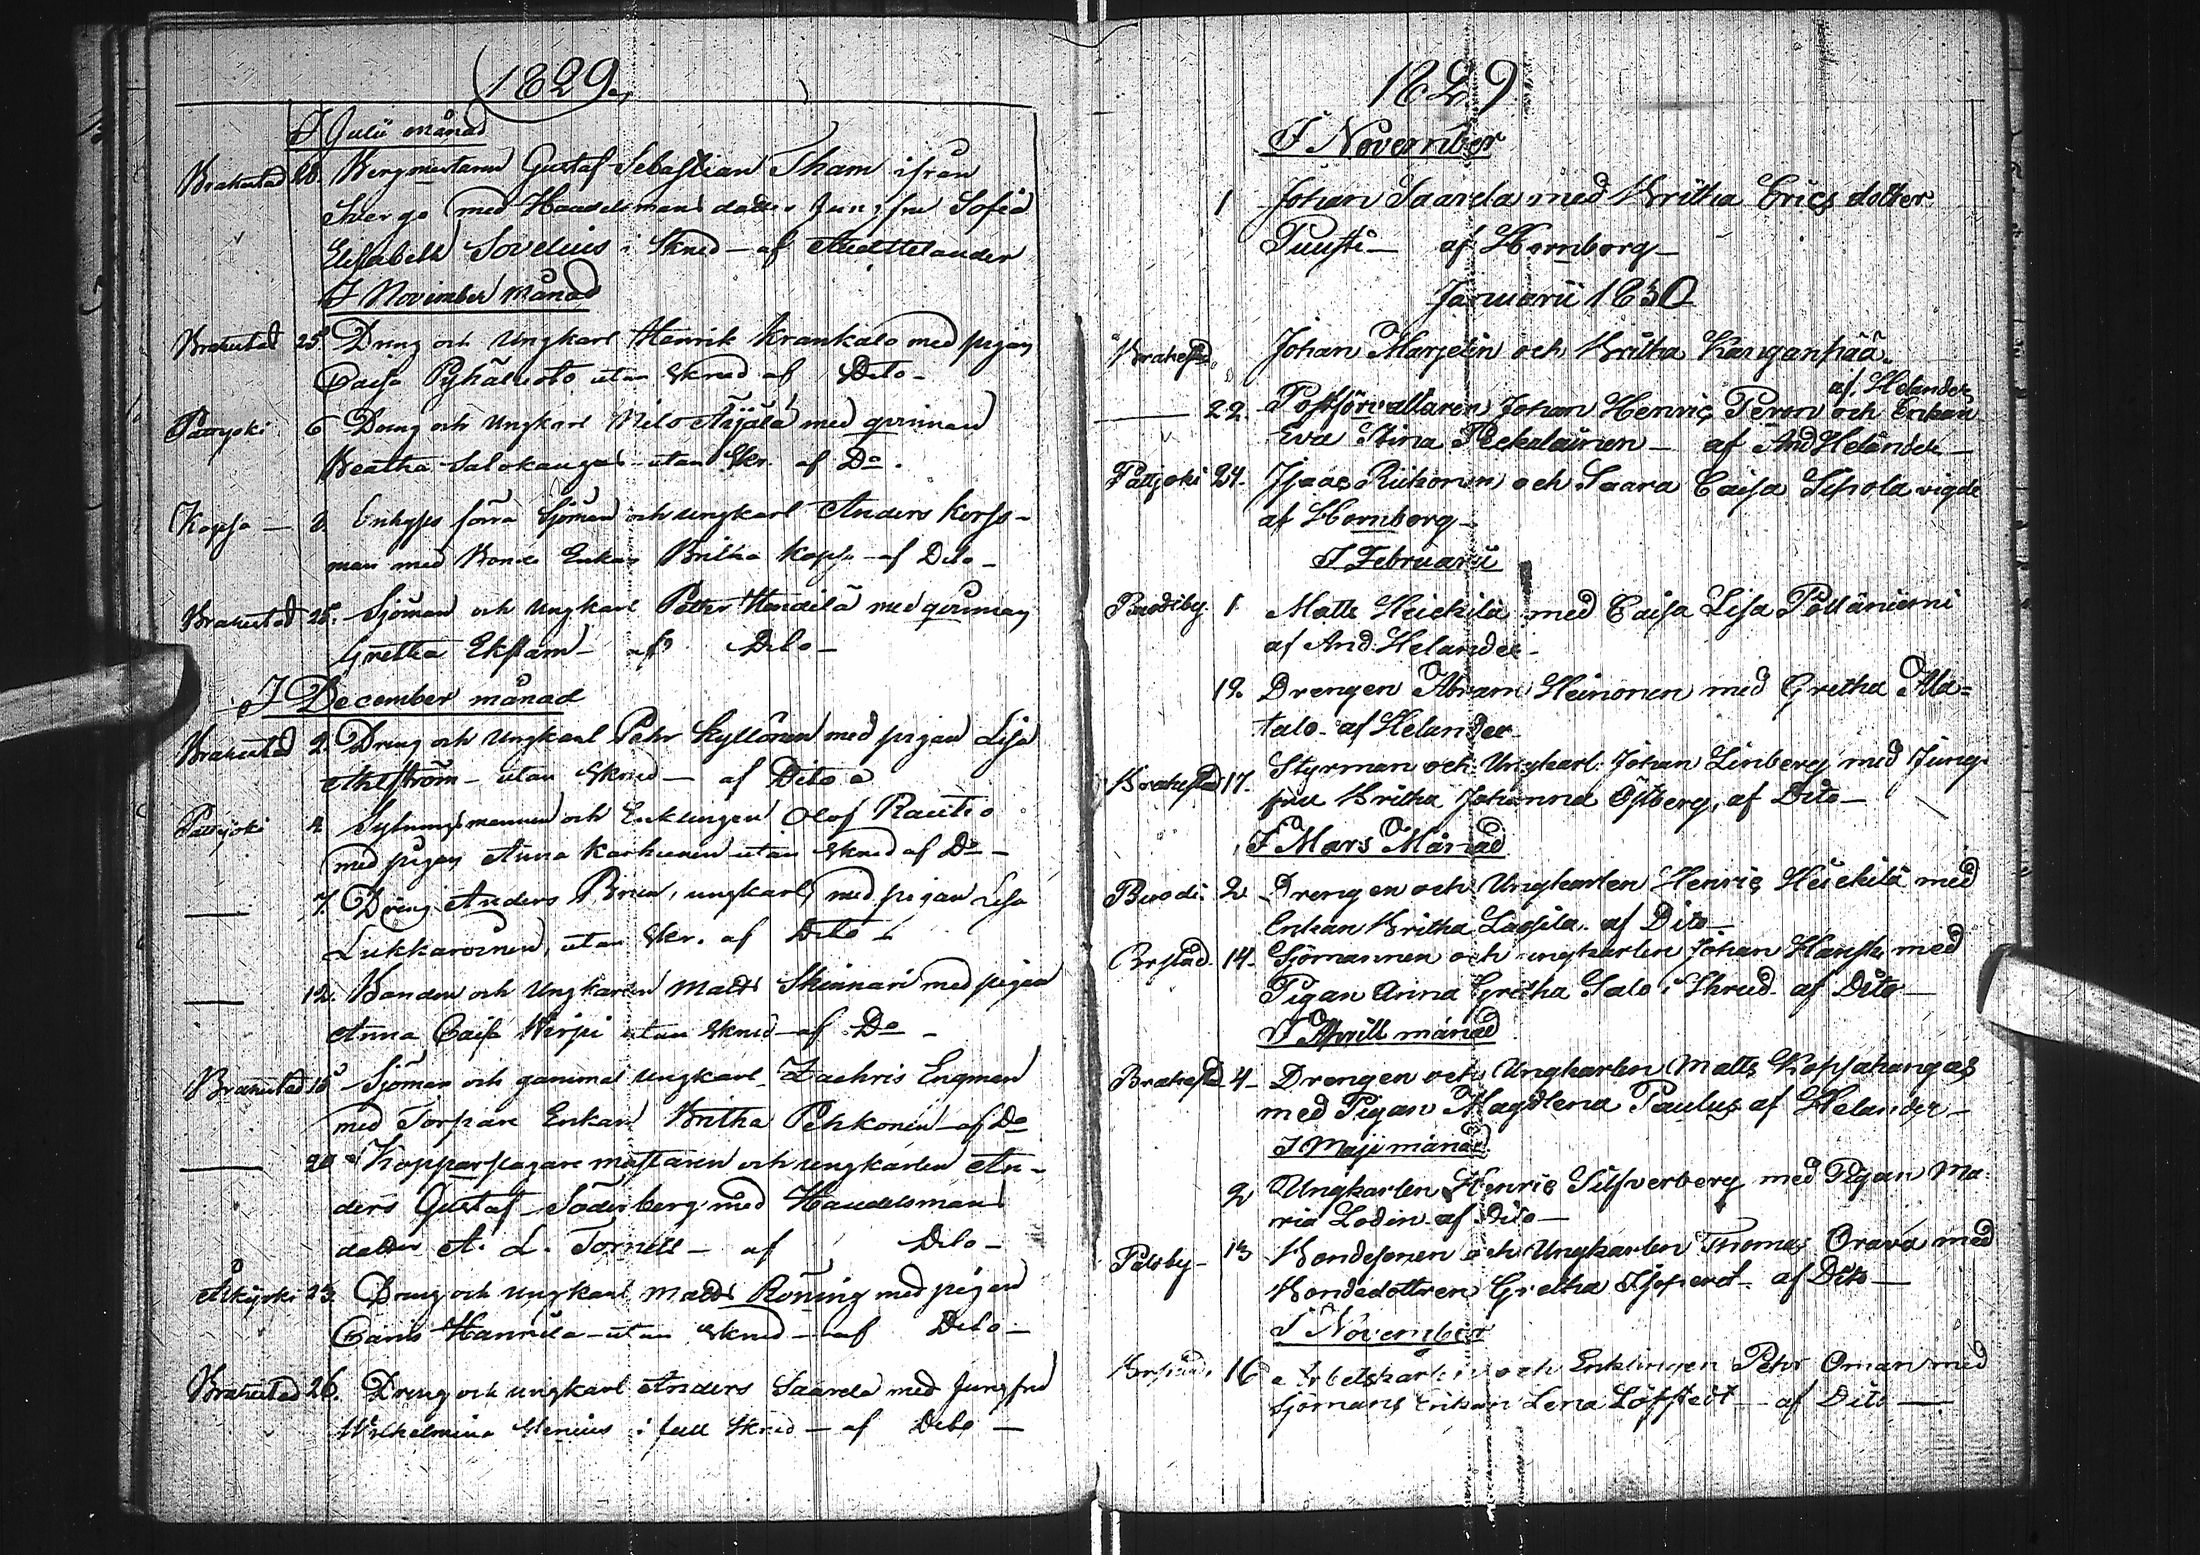 1829
I Julii månad
Brahestad 28. Bergmästaren Gustaf Sebastian Tham ifrån
med Handelsmans dotter Jungfru Sofia
Elisabeth Sovelius i Skrud - af And Helander
I November månad
Brahestad 25. Dräng och Ungkarl Henrik Krankala med pigan
Caisa Pyhäluoto utan Skrud af Dito -
Pattijoki 6 Dräng och Ungkarl Nils Äijälä med qvinnan
Beatha Salokangas utan Skr. af Do.
Kopsa - 8. förra Sjöman och ungkarl Anders Korps-
man med Bonde Enkan Britha Kopsa - af Dito -
Brahestad 25. Sjöman och Ungkarl Petter Hendilä med qvinnan
Gretha Ekstam - af Dito -
I December månad
Brahestad 2. Dräng och Ungkarl Pehr Kyllönen med pigan Lisa
Ahlström - utan Skrud - af Dito
Pattijoki 4 och Enklingen Olof Rautio
med pigan Anna Karhunen utan Skrud af Do -
— 7. Dräng Anders Brun, ungkarl, med pigan Lisa
Lukkaroinen, utan Skr. af Dito -
— 12. Bonden och Ungkarlen Matts Skinnari med pigan
Anna Caisa Wirpi utan Skrud - af Do -
Brahestad 15 Sjöman och gammal Ungkarl Zachris Engman
med Torpare Enkan Britha Pehkonen - af Do
— 20 Kopparslagare mästaren och ungkarlen An-
ders Gustaf Söderberg med Handelsmans
dotter A. L. Tornell - af Dito -
23. Dräng och Ungkarl Matts Röning med pigan
Hannila - utan Skrud - af Dito -
Brahestad 26. Dräng och ungkarl Anders Saarela med Jungfru
Wilhelmina Stenius i full Skrud - af Dito -
1829
I November
1 Johan Saarela med Britha Erics dotter
Puusti - af Hornborg -
Januarii 1830
Brahestad Johan Marjelin och Britha Kanganpää
af Helander
— 22. Postförvaltaren Johan Henric Peron och Enkan
Eva Stina Pekalainen - af And Helander -
Pattjoki 24. Isaac Riihonen och Saara Caisa Sipola vigde
af Hornborg -
I Februarii
1 Matts Heickilä med Caisa Lisa Polläniemi
af And. Helander -
19. Drengen Abram Heinonen med Gretha Ala=
talo af Helander
Brahestad 17. Styrman och Ungkarl Johan Linberg med Jung-
fru Britha Johanna Östberg, af Dito -
I Mars Månad
2 Drengen och Ungkarlen Henric Heickilä med
Enkan Britha Lassila af Dito -
Brstad 14. Sjömannen och ungkarlen Johan Hanski med
Pigan Anna Gretha Salo i Skrud af Dito -
I Aprill månad
Brahestad 4 - Drengen och Ungkarlen Matts Kopsakangas
med Pigan Magdlena Paulus af Helander -
I Maji månad
2 Ungkarlen Henric Silfverberg med Pigan Ma-
ria Lodin af Dito -
Peloby - 13 Bondesonen och Ungkarlen Thomas Orava med
Bondedottren Gretha af Dito -
I November
Brstad 16 Arbetskarlen och Enklingen Pehr Öman med
Sjömans Enkan Lena Löfstedt - af Dito -